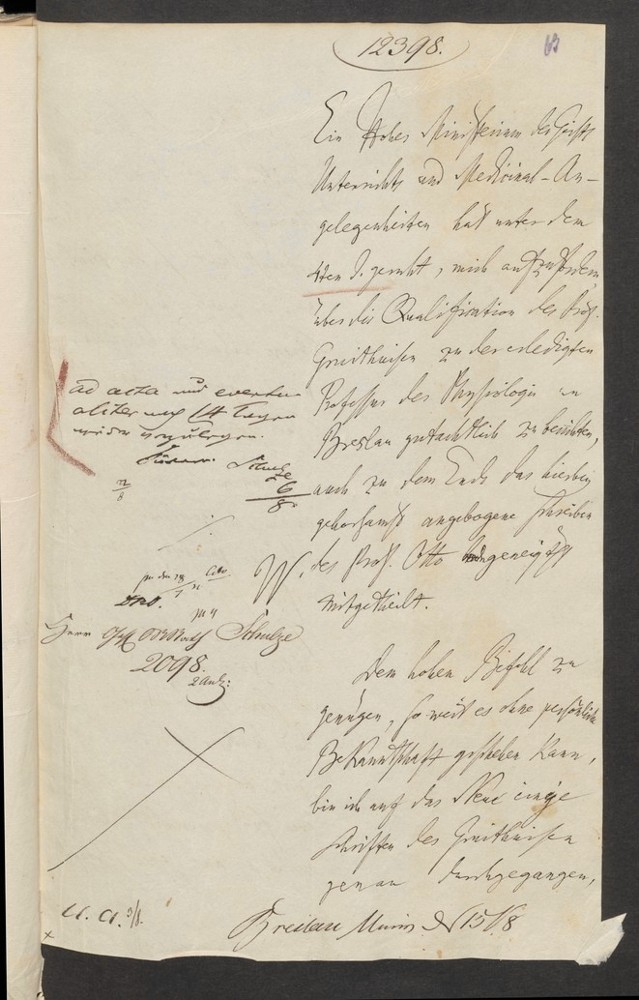 12398.
63
Ein Hohes Ministerium der Geistl.
Unterrichts und Medicinal-An-
gelegenheiten hat unter dem
4ten d. geruht, mich aufzufordern
über die Qualification des Prof.
Gruithuisen zu der erledigten
Professur der Physiologie in
Breslau gutachtlich zu berichten,
auch zu dem Ende das hierbei
gehorsamst angebogene Schreiben
des Prof. Otto hochgeneigtest
mitgetheilt.
Dem hohen Befehl zu
genügen, so weit es ohne persönliche
Bekanntschaft geschehen kann,
bin ich auf das Neue einige
Schriften des Gruithuisen
genau durchgegangen,
ad acta und
14 Tagen
wieder vorzulegen.
Schulze
6/8
Herrn Schulze
2098.
U. A. 3/8.
Breslau 15/8